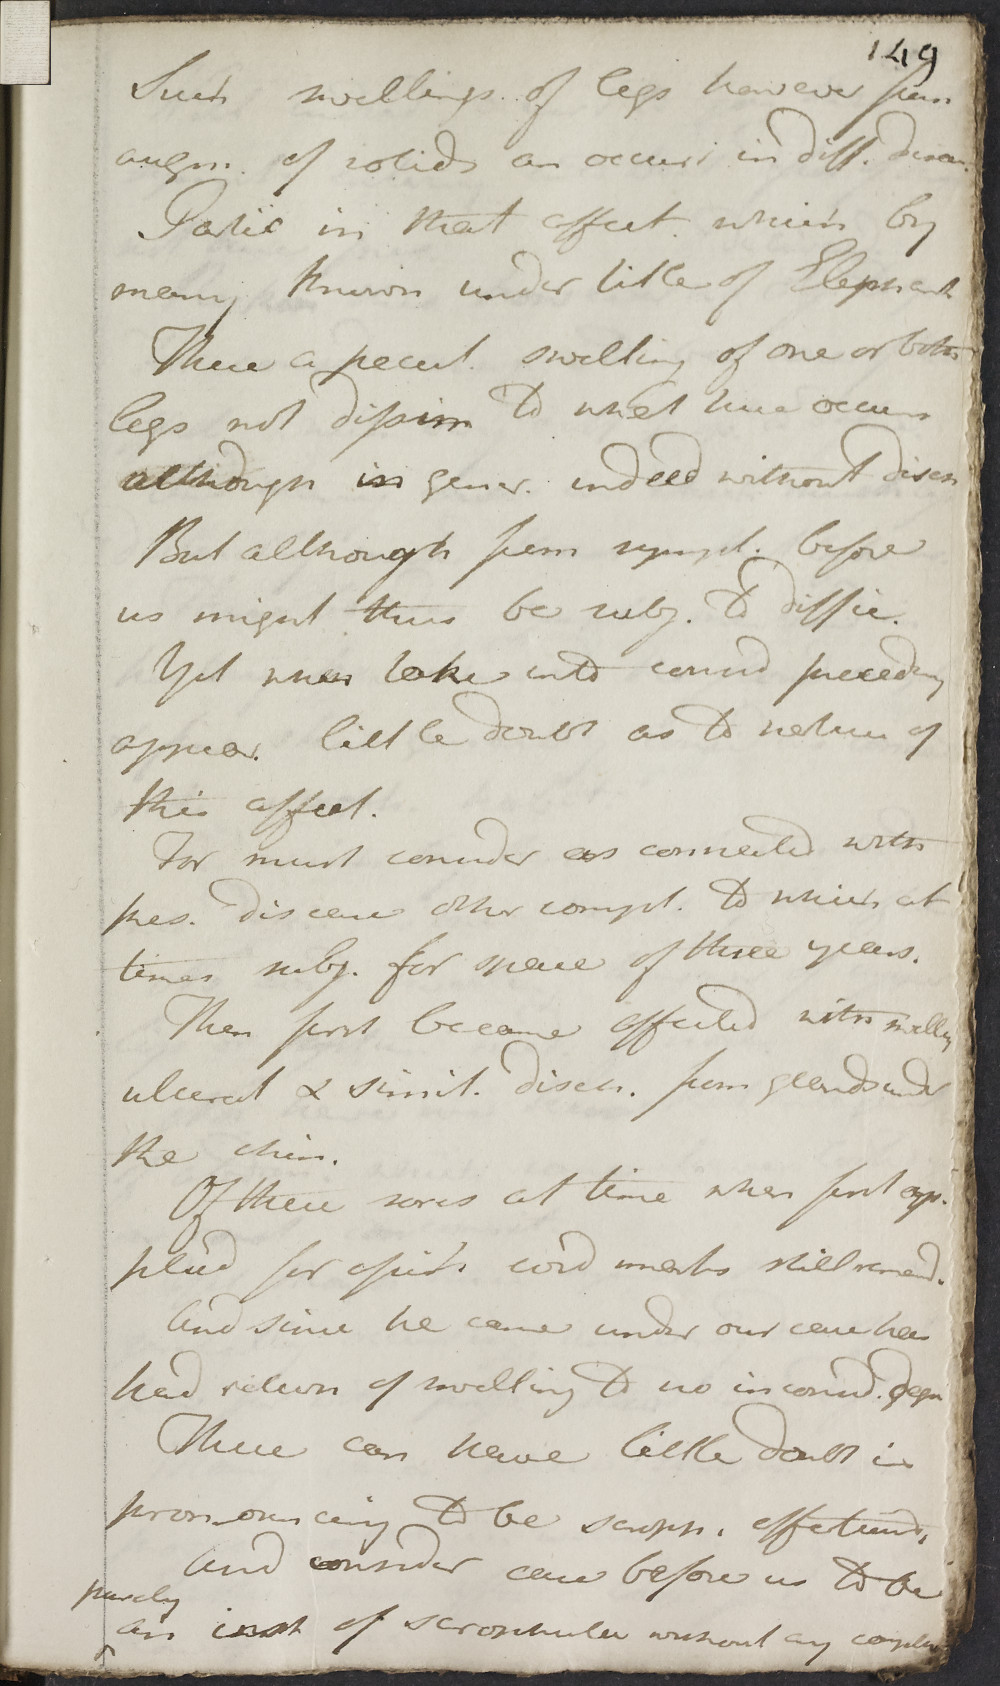 149
Such swellings of legs however from
augm. of solids an occurr in diff. diseas.
Partic in that affect. which by
many known under title of Elephant
There a pecul. swelling of one or both
legs not dissim to what here occurs
although in gener. indeed without disch
But although from sympt. before
us might thus be subj. to diffic.
Yet when take into consid preceding
appear. little doubt as to nature of
this affect.
For must consider as connected with
pres. disease other compl. to which at
times subj. for space of three years.
Then first became affected with swelling
ulcerat & simil. disch. from glands under
the chin.
Of these sores at time when first ap-
plied for assist. coud marks still remd.
And since he came under our care has
had return of swelling to no inconsid. degr
These can have little doubt in
pronouncing to be scroph. affections.
And consider case before us to be
purely
an inst of scrophula without any complic